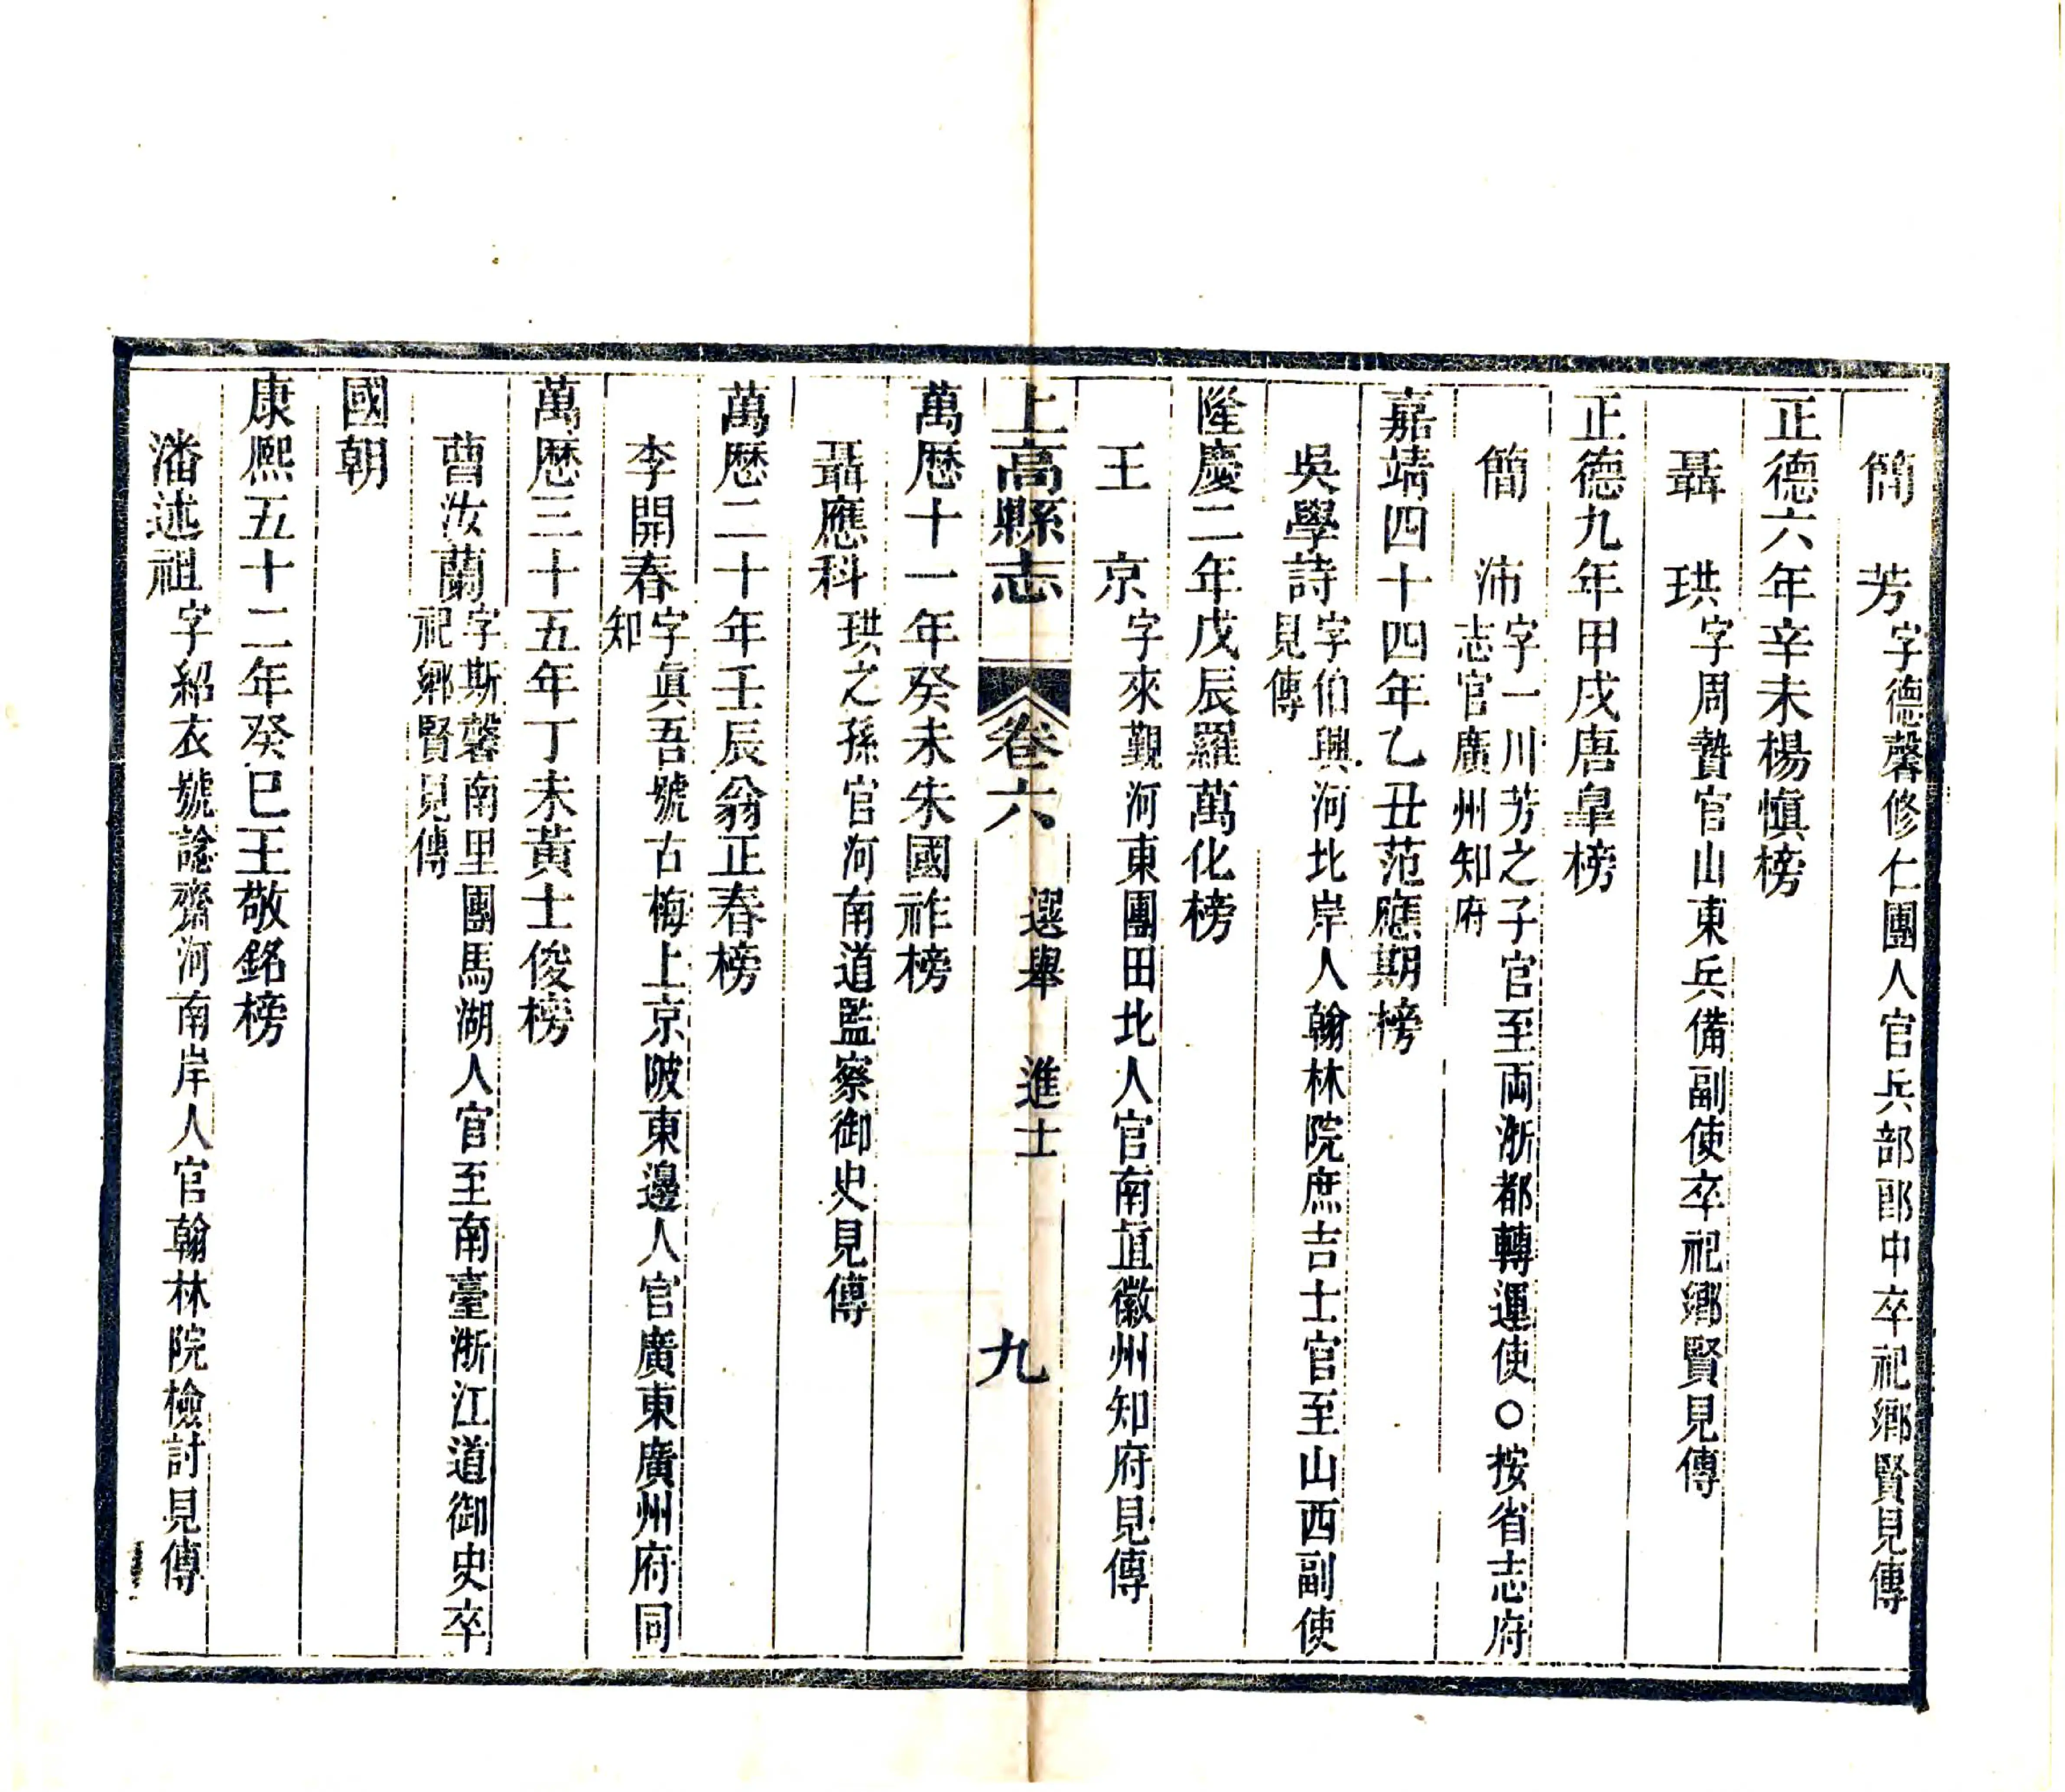 簡　芳字德馨修仁團人官兵部郎中卒祀鄉賢見傳
正德六年辛未楊慎榜
聶　珙字周贄官山東兵備副使卒祀鄉賢見傳
正德九年甲戌唐皐榜
簡　沛字一川芳之子官至両浙都轉運使○按省志府
志官廣州知府
嘉靖四十四年乙丑范應期榜
吳學詩字伯興河北岸人翰林院庶吉士官至山西副使
見傳
隆慶二年戊辰羅萬化榜
王　京字來覲河東團田北人官南直徽州知府見傳
上高縣志　卷六　選舉　進士　九
萬歷十一年癸未朱國祚榜
聶應科珙之孫官河南道監察御史見傳
萬歷二十年壬辰翁正春榜
李開春字眞吾號古梅上京陂東邊人官廣東廣州府同
知
萬歷三十五年丁未黃士俊榜
曹汝蘭字斯馨南里團馬湖人官至南臺浙江道御史卒
祀鄉賢見傳
國朝
康熙五十二年癸巳王敬銘榜
潘述祖字紹衣號謐齋河南岸人官翰林院檢討見傳